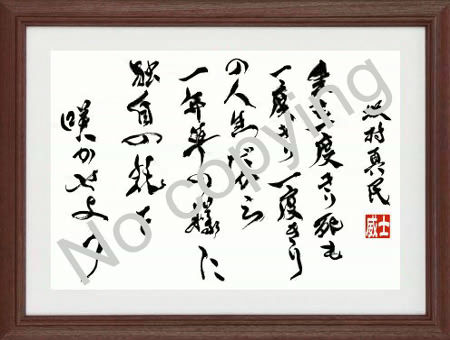 坂村真民
生も一度きり死も
一度きり一度きり
の人生だから
一年草の様に
独自の花を
咲かせよう
士威
No copying